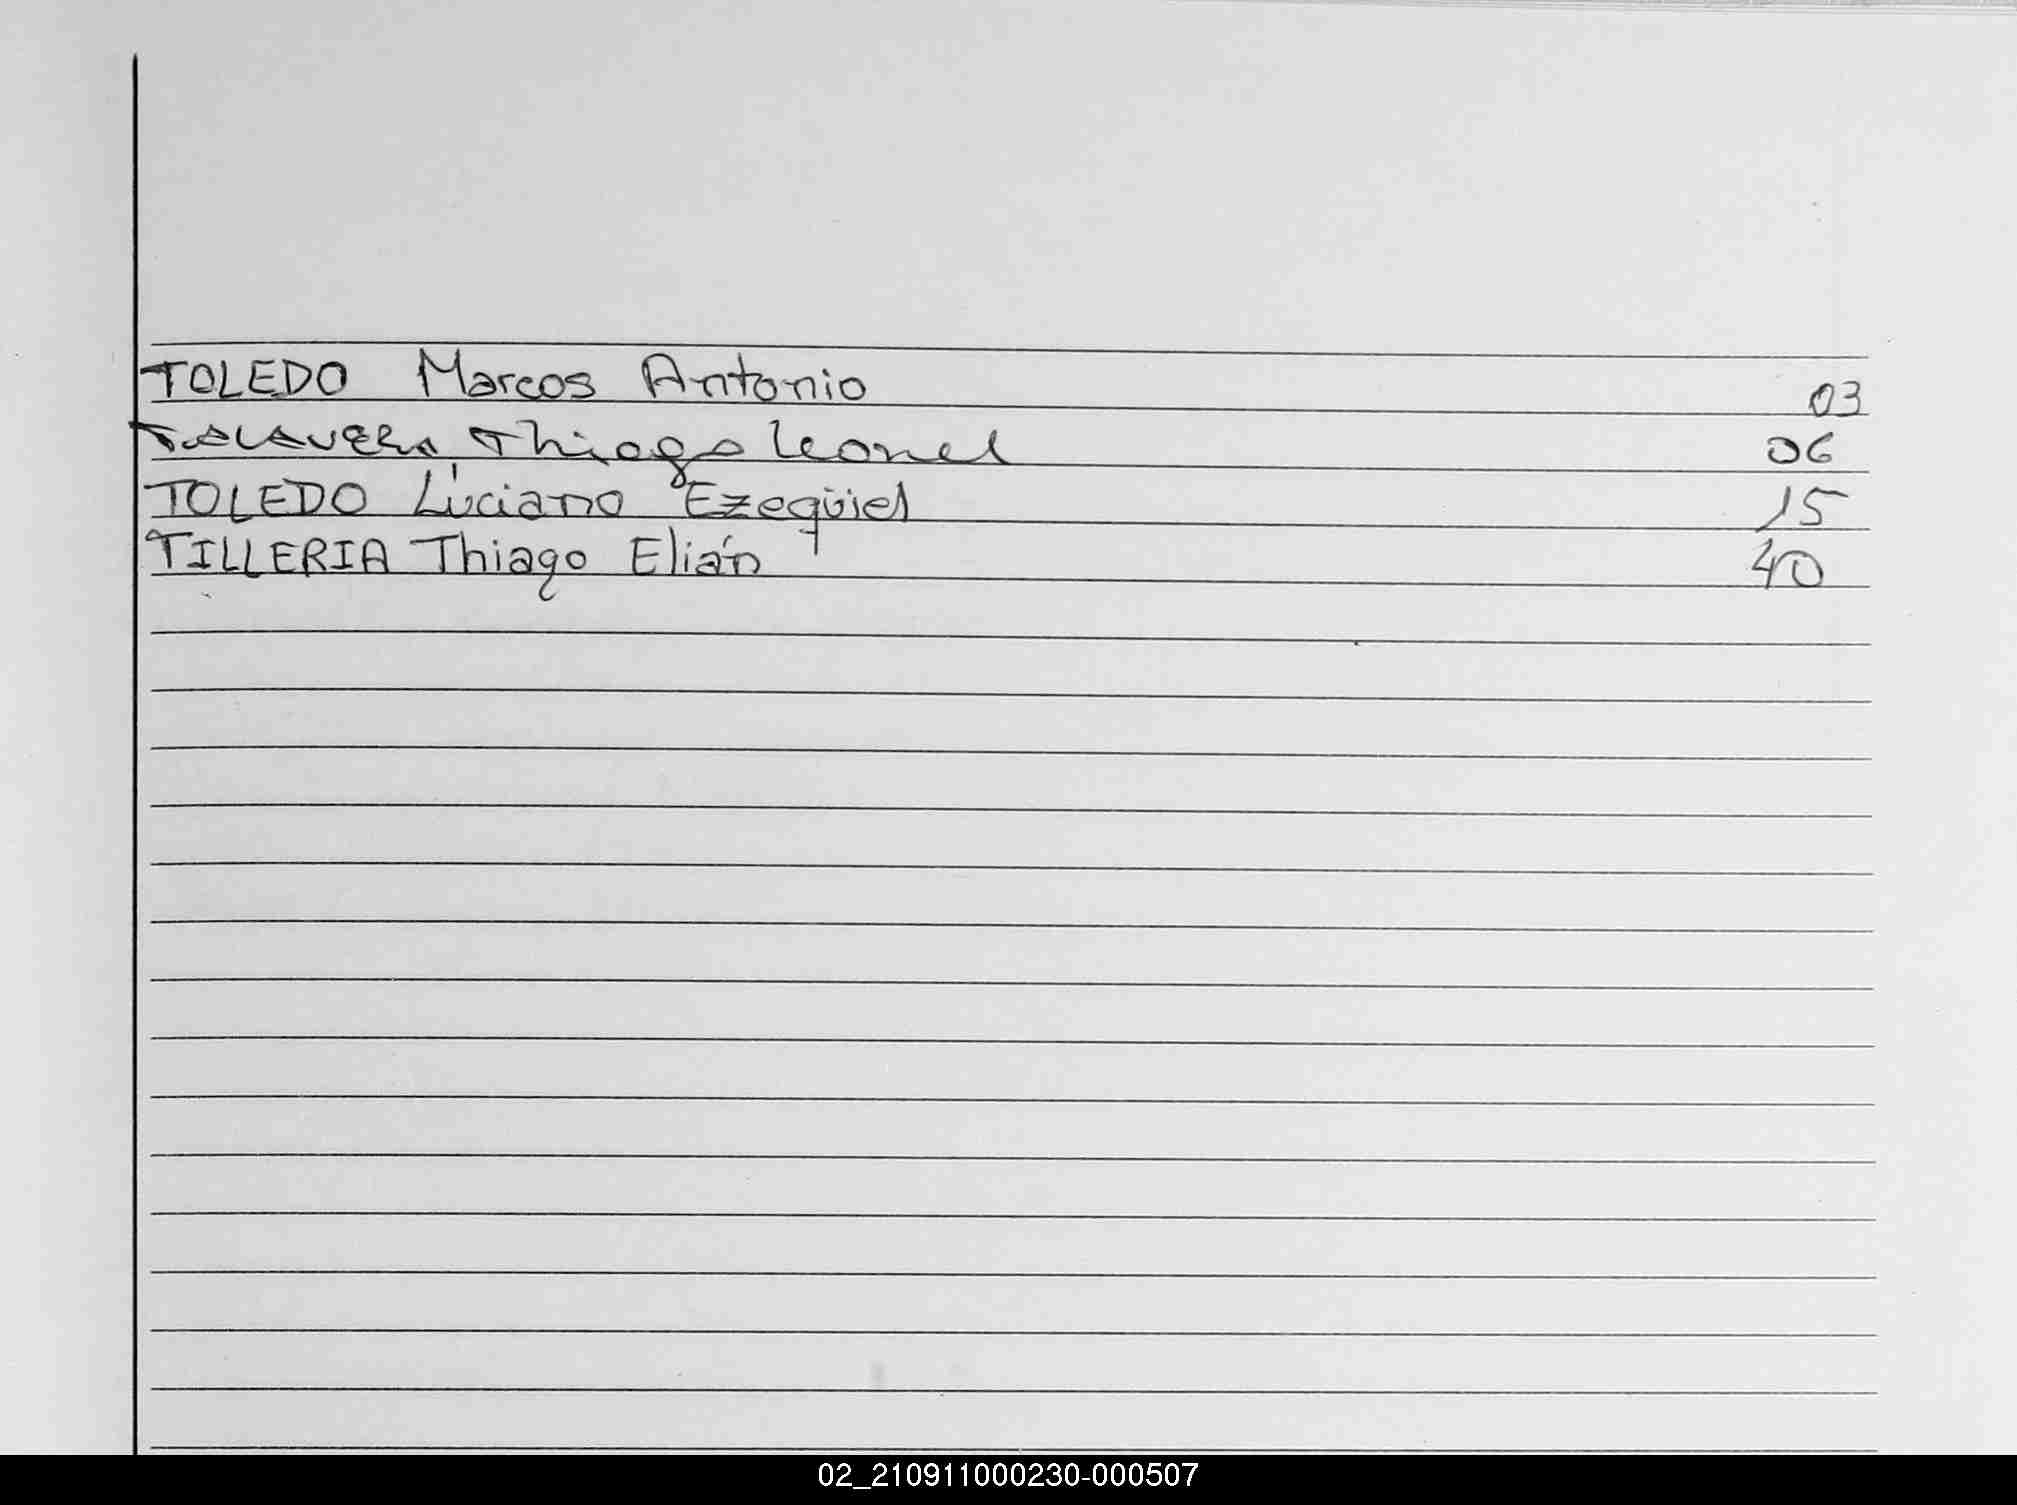 TOLEDO Marcos Antonio 03
TALAVERA Thiago Leonel 06
TOLEDO Luciano Ezequiel 15
TILLERIA Thiago Elián 40
02_210911000230-000507